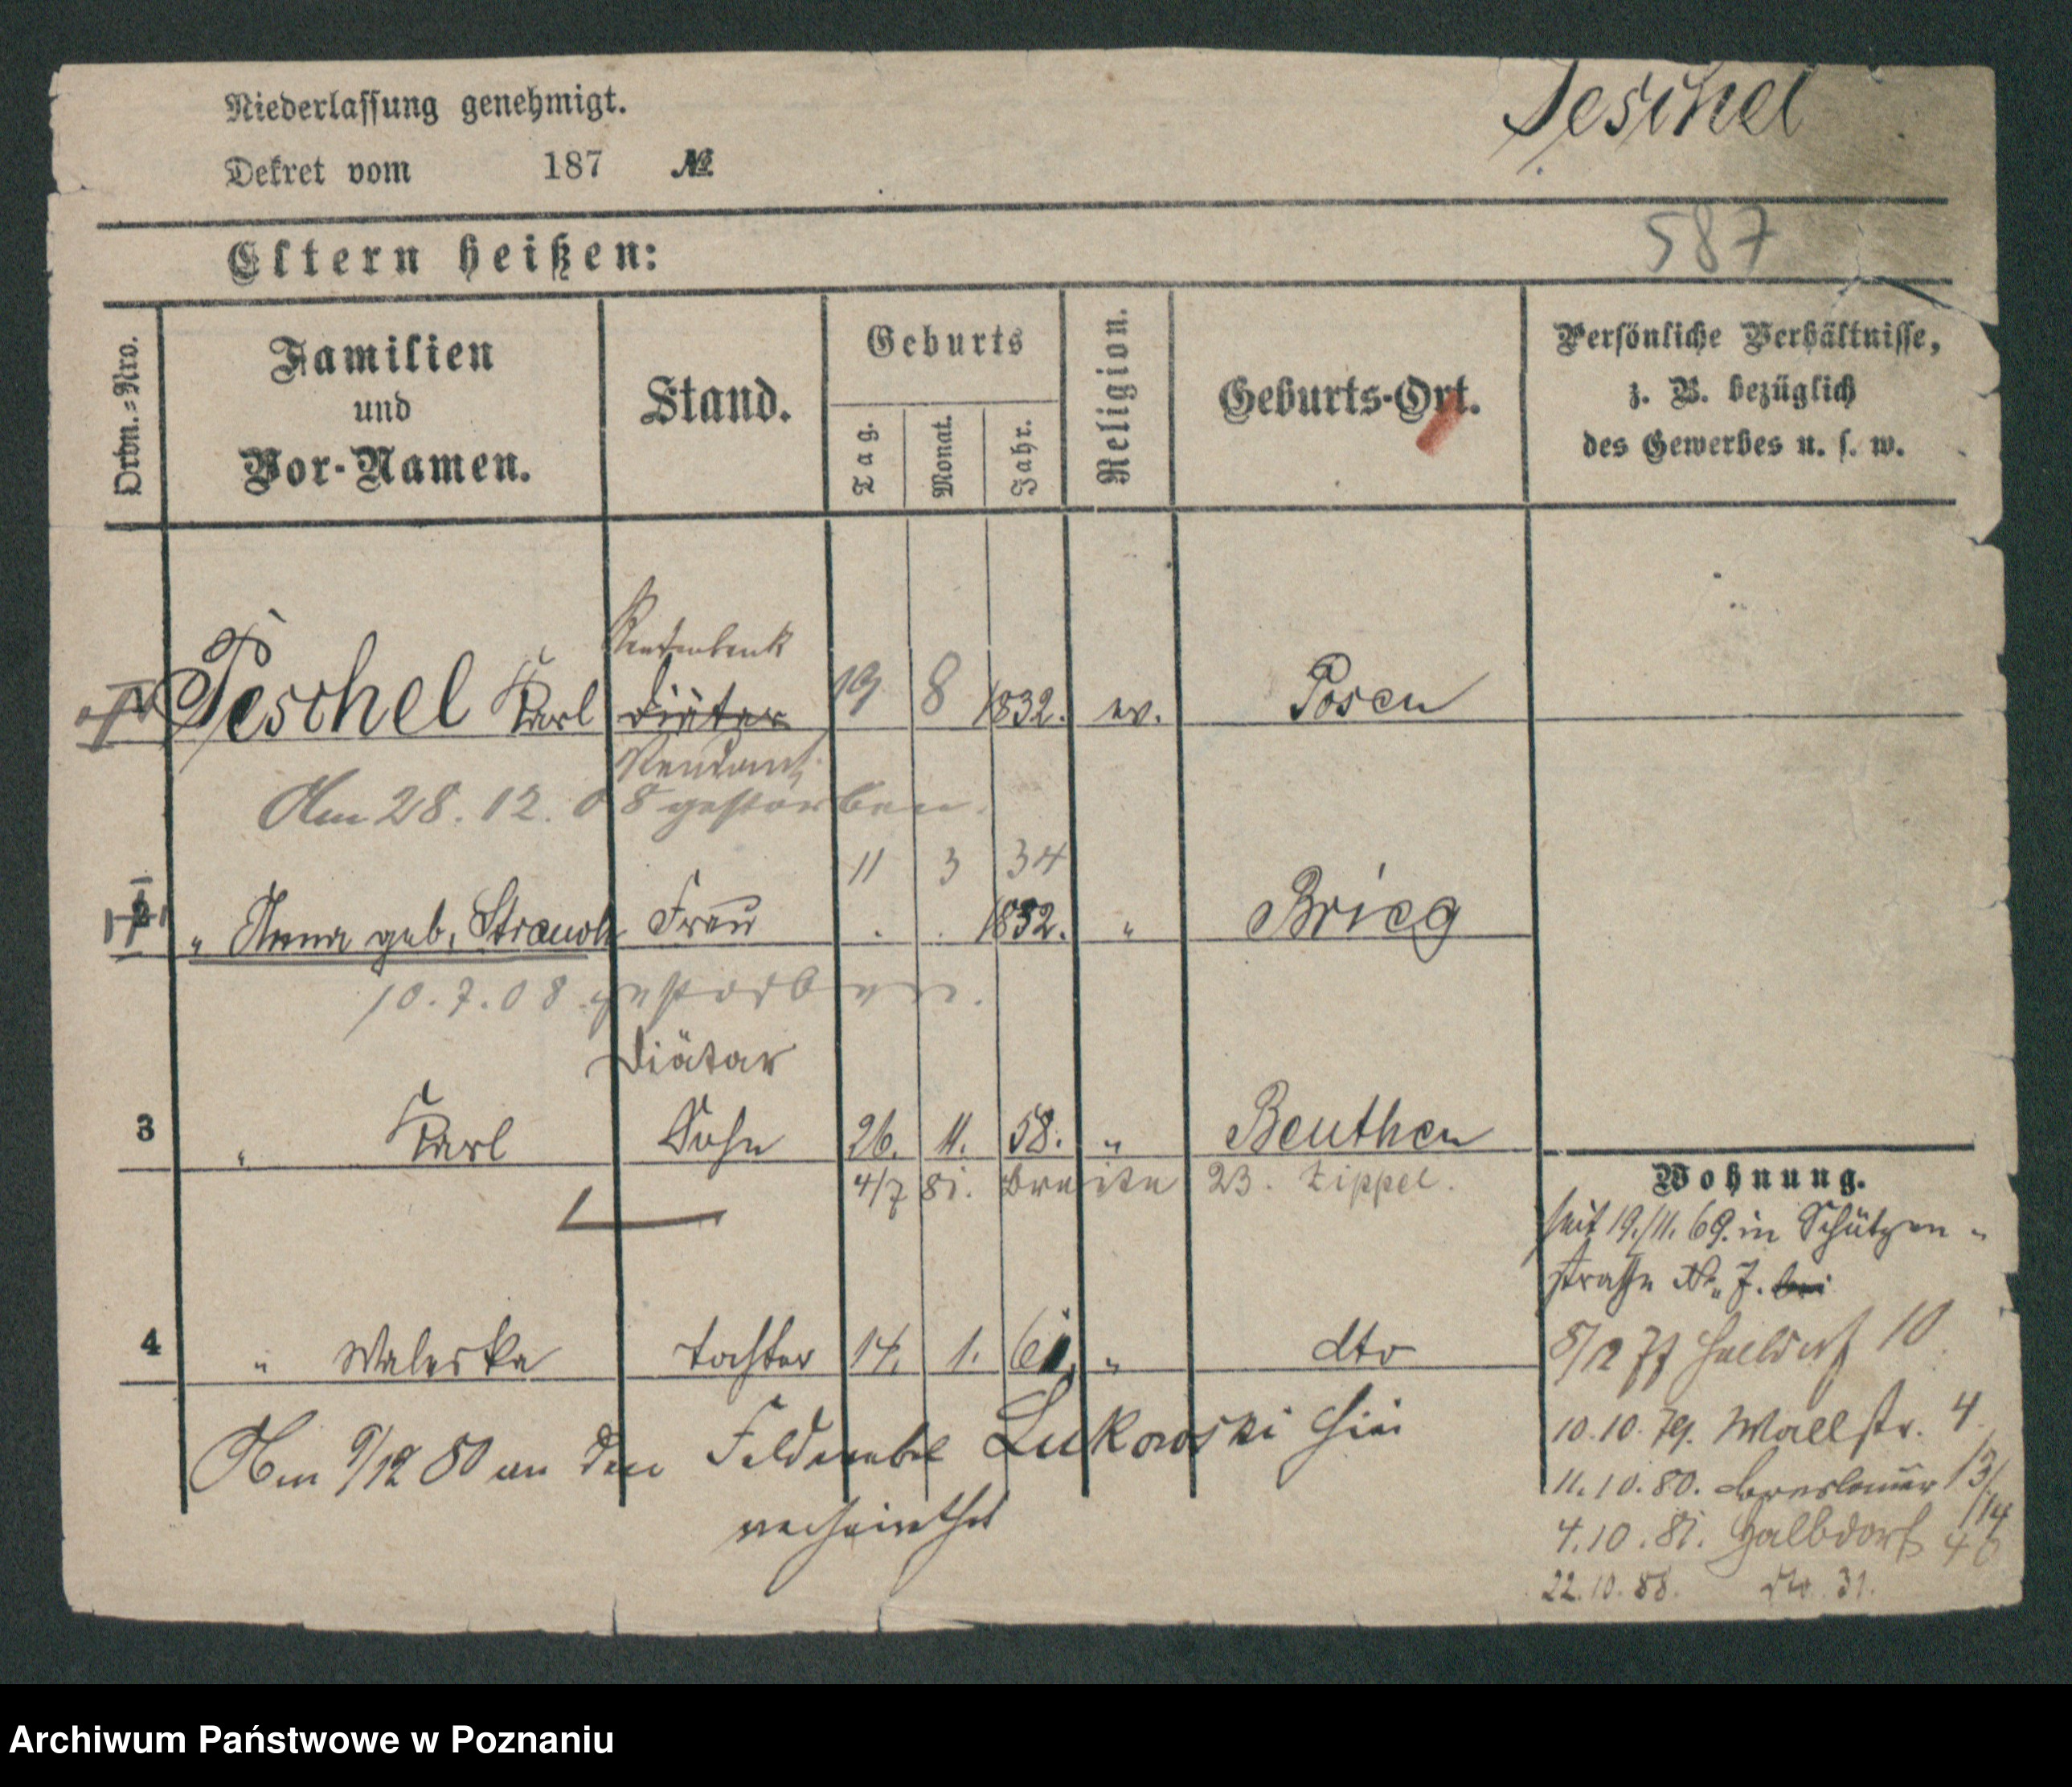 Niederlassung genehmigt.
Peschel
Dekret vom 187 №
587
Eltern heißen:
Ordn.=Nro.
Familien
und
Vor-Namen.
Stand.
Geburts
Tag.
Monat.
Jahr.
Religion.
Geburts-Ort.
Persönliche Verhältnisse,
z. B. bezüglich
des Gewerbes u. s. w.
Rentenbank
Peschel Karl Diätar 19 8 1832. ev. Posen
Rendant
Am 28. 12. 08 gestorben.
11 3 34
2 " Anna geb. Strauch Frau . . 1832. " Brieg
10.7.08 gestorben.
Diätar
3 " Karl Sohn 26. 11. 58. " Beuthen
4/7 81. Breite 23. Zippel.
4 " Waleska Tochter 14. 1. 61. " dto
Am 9/12 80 an den Feldwebel Lukowski hier
verheirathet
Wohnung.
seit 19./11. 69. in Schützen-
straße No. 7. bei
5/12 77 Halbdorf 10
10.10.79. Wallstr. 4.
11.10.80. Breslauer 13/14
4.10.81. Halbdorf
22.10.88. No. 31.
Archiwum Państwowe w Poznaniu